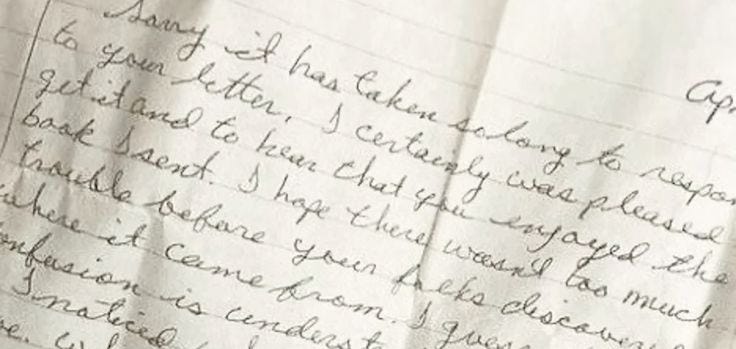 Ap
Sorry it has taken so long to respon
to your letter. I certainly was pleased
get it and to hear that you enjoyed the
book I sent. I hope there wasn't too much
trouble before your folks discovere
where it came from. I gues
onfusion is underst
I noticed